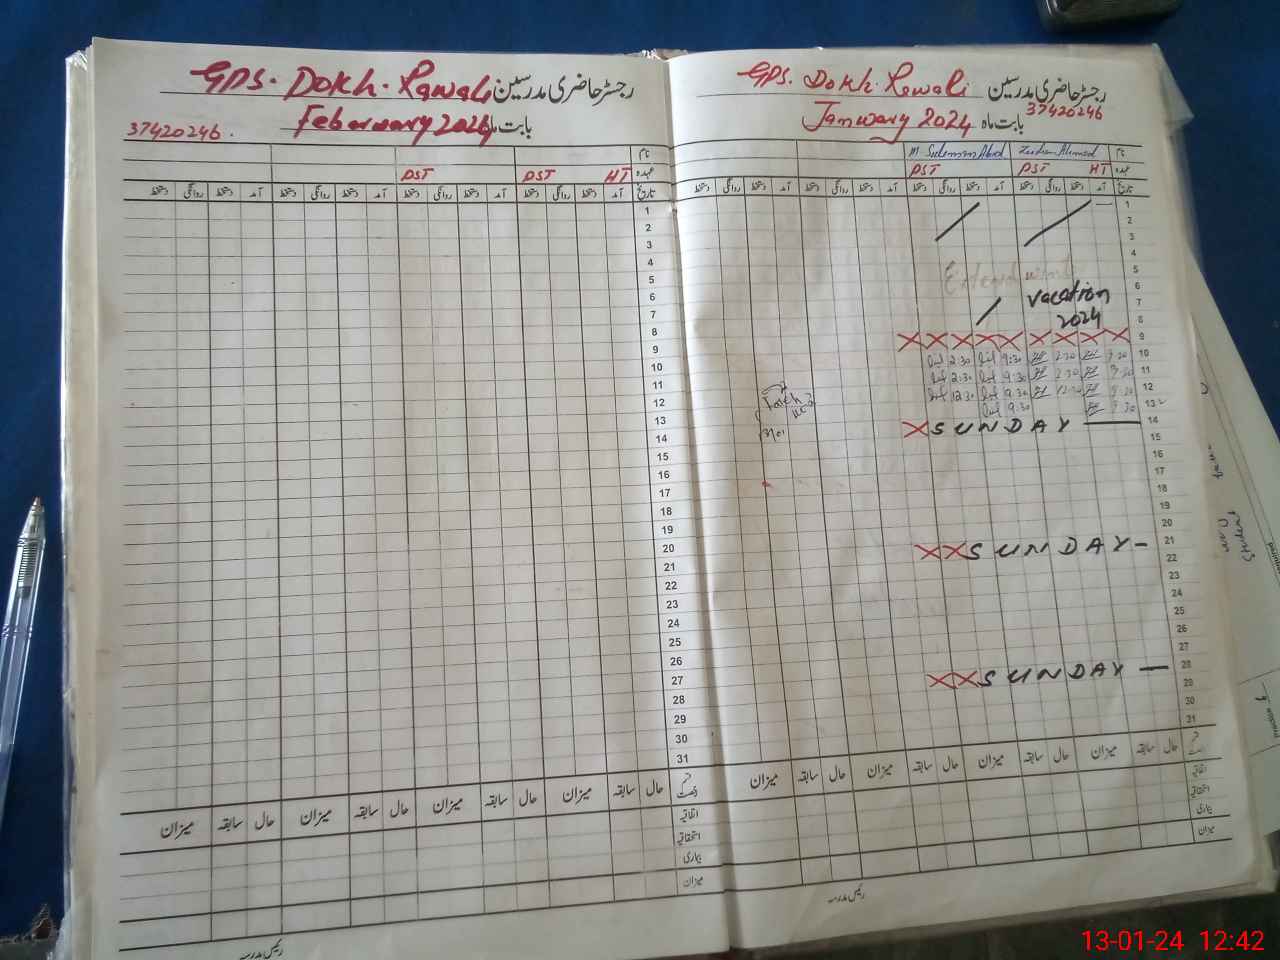 GPS. Dokh. Kawali رجسٹر حاضری مدرسین
37420246. Feberwary 2024 بابت ماہ
نام
PST PST HT عہدہ
دستخط روانگی دستخط آمد دستخط روانگی دستخط آمد دستخط روانگی دستخط آمد دستخط روانگی دستخط آمد تاریخ
1
2
3
4
5
6
7
8
9
10
11
12
13
14
15
16
17
18
19
20
21
22
23
24
25
26
27
28
29
30
31
میزان سابقہ حال میزان سابقہ حال میزان سابقہ حال میزان سابقہ حال
اتفاقیہ
استحقاقیہ
بیماری
میزان
رئیس مدرسہ
GPS. Dokh. Kawali رجسٹر حاضری مدرسین
Janwary 2024 بابت ماہ 37420246
نام
PST PST HT عہدہ
دستخط روانگی دستخط آمد دستخط روانگی دستخط آمد دستخط روانگی دستخط آمد دستخط روانگی دستخط آمد تاریخ
1
2
3
4
5
6
vacation 7
2024 8
X X X X X X X X X 9
2:30 9:30 2:30 9:30 10
2:30 9:30 2:30 9:30 11
12:30 9:30 12:30 9:30 12
9:30 9:30 13
X SUNDAY 14
15
16
17
18
19
20
XX SUNDAY 21
22
23
24
25
26
27
XX SUNDAY 28
29
30
31
میزان سابقہ حال میزان سابقہ حال میزان سابقہ حال میزان سابقہ حال
اتفاقیہ
استحقاقیہ
بیماری
میزان
رئیس مدرسہ
Student
13-01-24 12:42